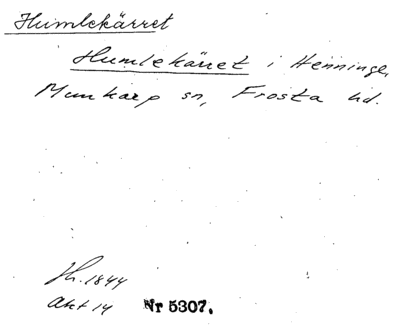 Humlekärret
Humlekärret i Henninge,
Munkarp sn, Frosta hd.
1844
Akt 14 Nr 5307.